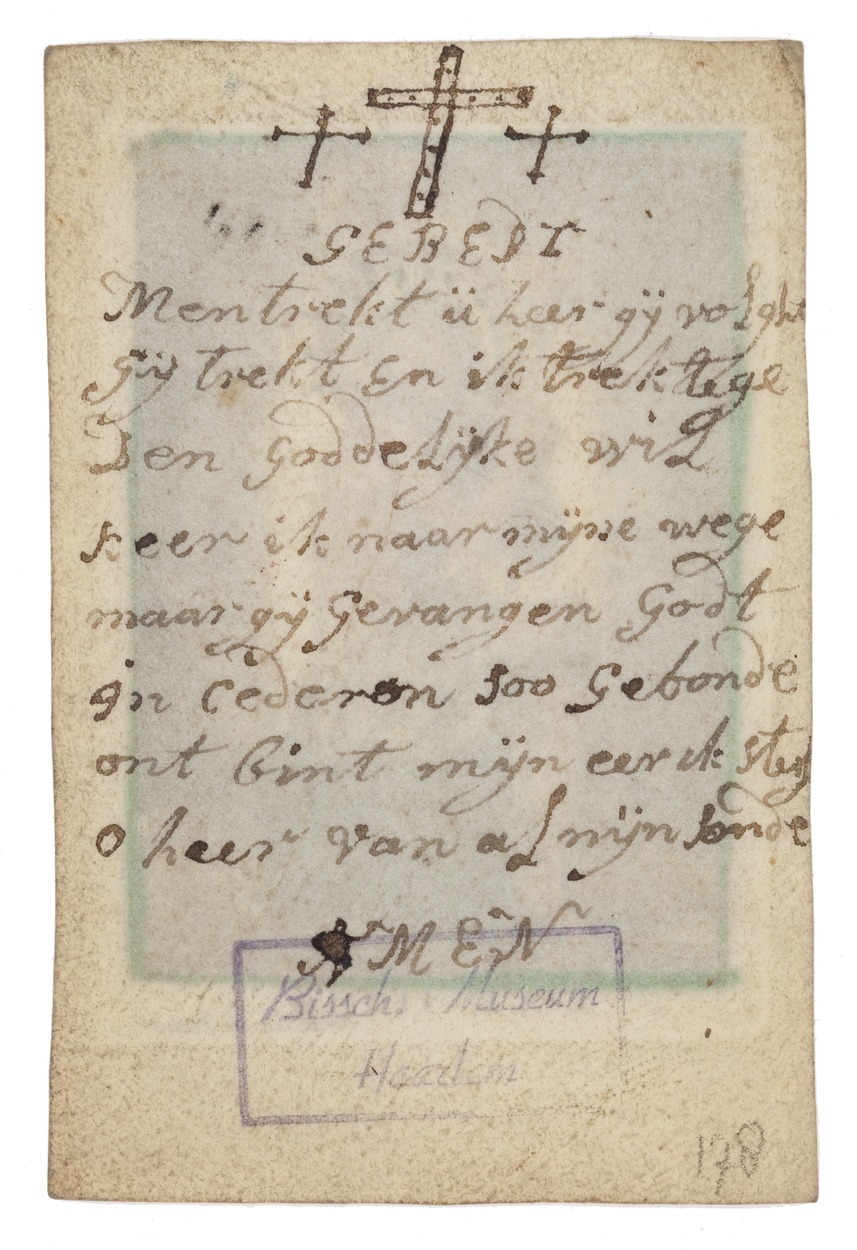 GEBEDT
Men trekt ü heer gÿ volght
Gÿ trekt En ik trek tege
Den Goddelÿke wil
keer ik naar mÿne wege
maar gÿ Gevangen Godt
in Cederon soo Gebonde
ont bint mÿn eer ik
o heer van al mÿn sonde
AMEN
Bissch. Museum
Haarlem
178